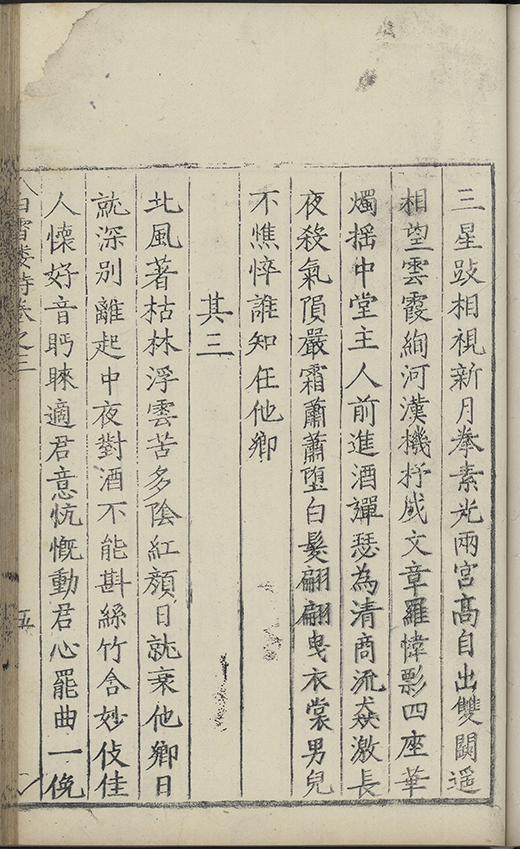 三星跂相視新月拳素光兩宮高自出雙闕遥
相望雲霞絢河漢機杼成文章羅幃彯四座華
燭揺中堂主人前進酒彈瑟為清商流猋激長
夜殺氣隕嚴霜蕭蕭墮白髮翩翩曳衣裳男兒
不憔悴誰知在他鄉
其三
北風著枯林浮雲苦多陰紅顏日就衰他鄉日
就深别離起中夜對酒不能斟絲竹含妙伎佳
人懐好音眄睞適君意忼慨動君心罷曲一俛
卷之三
五